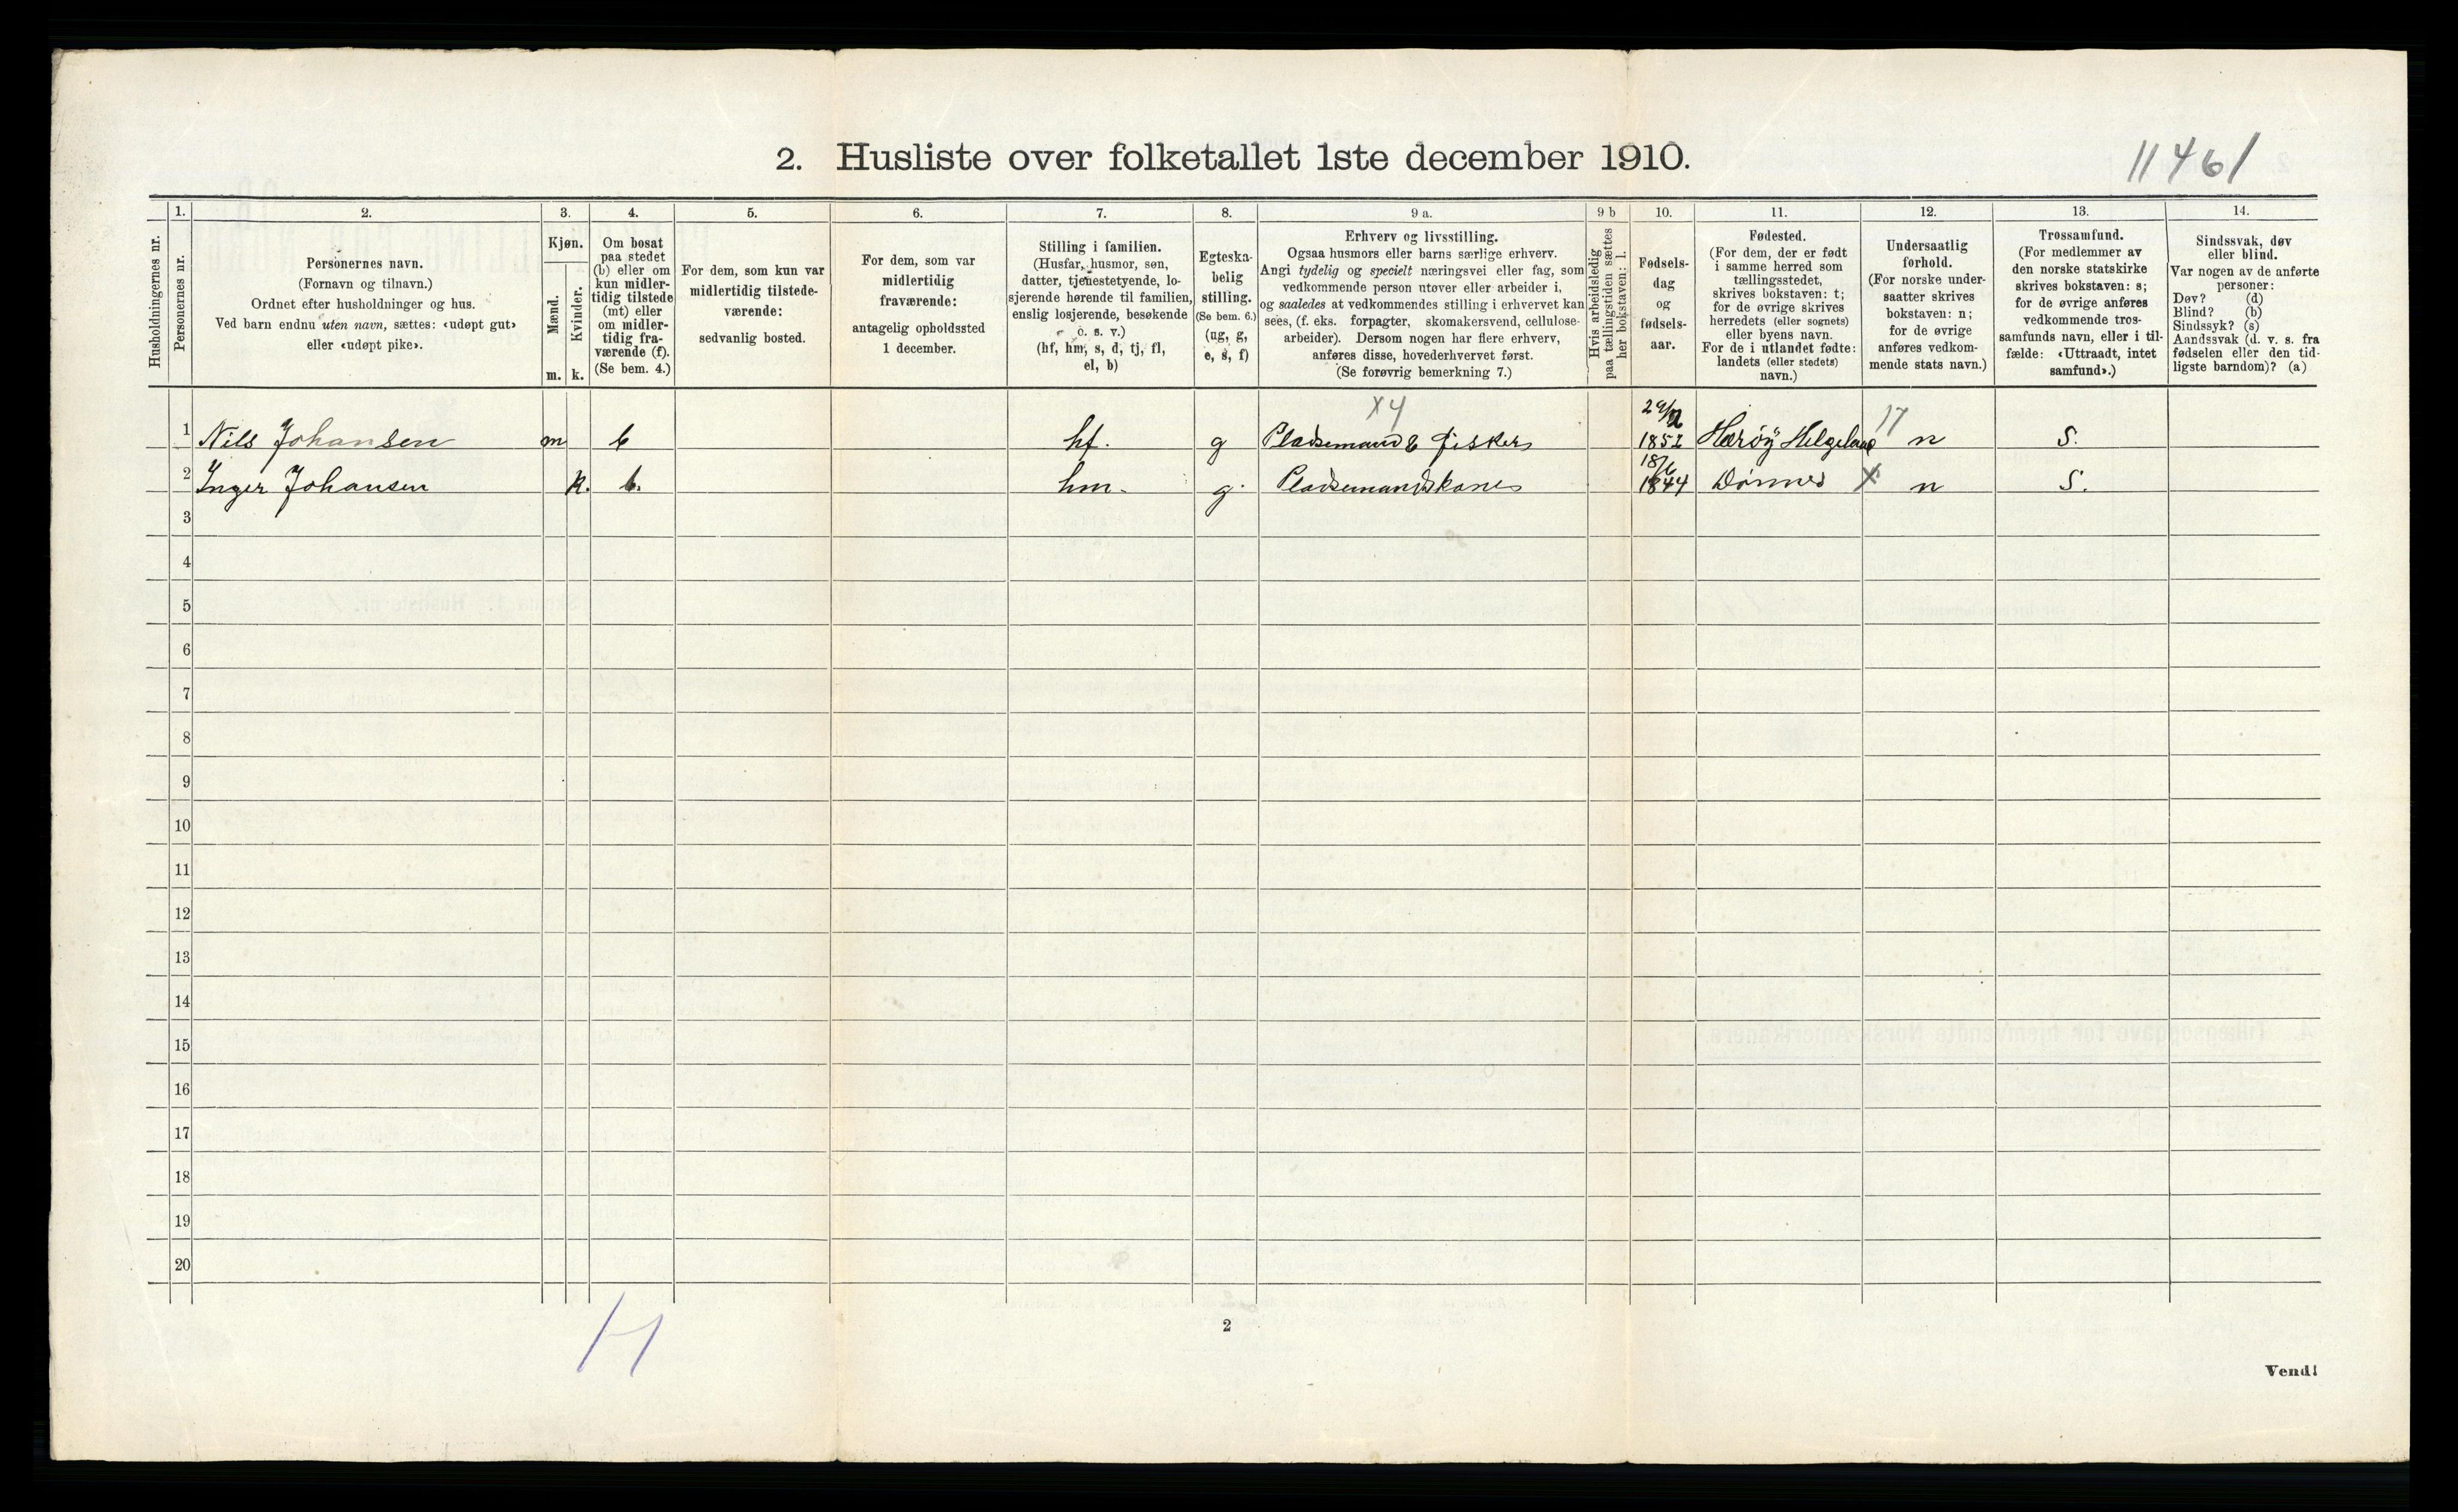 2. Husliste over folketallet 1ste december 1910.
11461
Husholdningernes nr.
1.
Personernes nr.
2.
Personernes navn.
(Fornavn og tilnavn.)
Ordnet efter husholdninger og hus.
Ved barn endnu uten navn, sættes: «udøpt gut»
eller «udøpt pike».
3.
Kjøn.
Mænd.
Kvinder.
m. k.
4.
Om bosat
paa stedet
(b) eller om
kun midler-
tidig tilstede
(mt) eller
om midler-
tidig fra-
værende (f).
(Se bem. 4.)
5.
For dem, som kun var
midlertidig tilstede-
værende:
sedvanlig bosted.
6.
For dem, som var
midlertidig
fraværende:
antagelig opholdssted
1 december.
7.
Stilling i familien.
(Husfar, husmor, søn,
datter, tjenestetyende, lo-
sjerende hørende til familien,
enslig losjerende, besøkende
o. s. v.)
(hf, hm, s, d, tj, fl,
el, b)
8.
Egteska-
belig
stilling.
(Se bem. 6.)
(ug, g,
e, s, f)
9 a.
Erhverv og livsstilling.
Ogsaa husmors eller barns særlige erhverv.
Angi tydelig og specielt næringsvei eller fag, som
vedkommende person utøver eller arbeider i,
og saaledes at vedkommendes stilling i erhvervet kan
sees, (f. eks. forpagter, skomakersvend, cellulose-
arbeider). Dersom nogen har flere erhverv,
anføres disse, hovederhvervet først.
(Se forøvrig bemerkning 7.)
9 b
Hvis arbeidsledig
paa tællingstiden sættes
her bokstaven: l.
10.
Fødsels-
dag
og
fødsels-
aar.
11.
Fødested.
(For dem, der er født
i samme herred som
tællingsstedet,
skrives bokstaven: t;
for de øvrige skrives
herredets (eller sognets)
eller byens navn.
For de i utlandet fødte:
landets (eller stedets)
navn.)
12.
Undersaatlig
forhold.
(For norske under-
saatter skrives
bokstaven: n;
for de øvrige
anføres vedkom-
mende stats navn.)
13.
Trossamfund.
(For medlemmer av
den norske statskirke
skrives bokstaven: s;
for de øvrige anføres
vedkommende tros-
samfunds navn, eller i til-
fælde: «Uttraadt, intet
samfund».)
14.
Sindssvak, døv
eller blind.
Var nogen av de anførte
personer:
Døv? (d)
Blind? (b)
Sindssyk? (s)
Aandssvak (d. v. s. fra
fødselen eller den tid-
ligste barndom)? (a)
x4
1 Nils Johansen m b hf. g Pladsemand & fisker 1852 Herøÿ Helgeland 17 n S.
2 Inger Johansen k. b. hm. g. Pladsemandskone 18/6 1844 Dønnes X n S.
3
4
5
6
7
8
9
10
11
12
13
14
15
16
17
18
19
20
2
Vend!